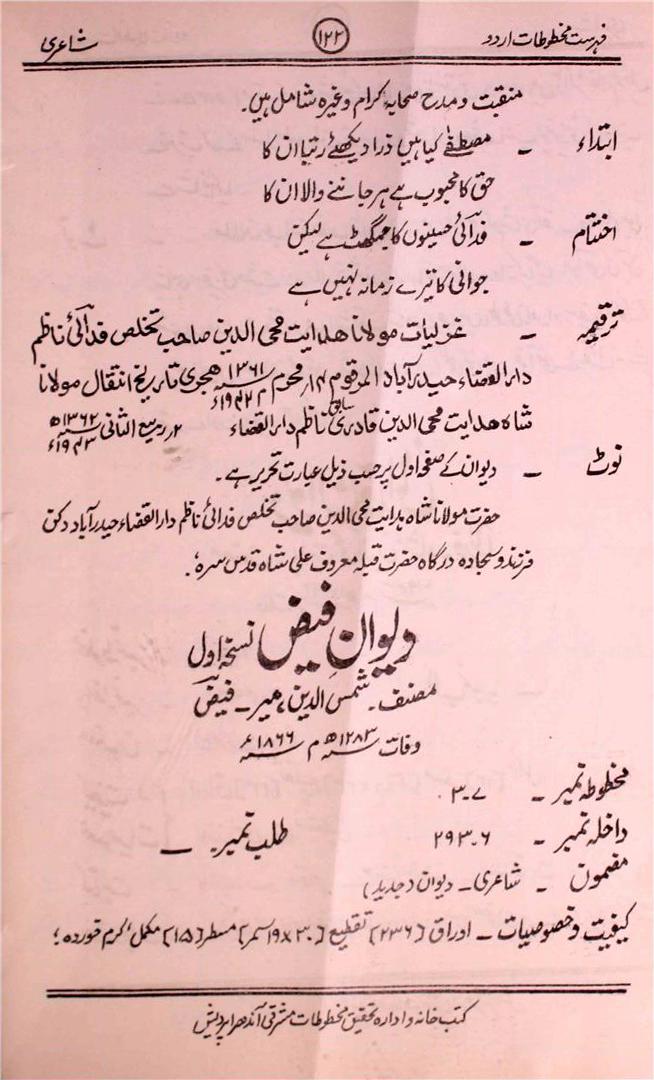 فہرست مخطوطات اردو ۱۲۲ شاعری
منقبت و مدح صحابہ کرام وغیرہ شامل ہیں۔
ابتداء ـ مصطفےٰ کیا ہیں ذرا دیکھئے رتبا ان کا
حق کا محبوب ہے ہر جاننے والا ان کا
اختتام ـ فدائی حسینوں کا جمگھٹ ہے لیکن
جوانی کا تیرے زمانہ نہیں ہے
ترقیمہ ـ غزلیات مولانا ھدایت محی الدین صاحب تخلص فدائی ناظم
دارالقضاء حیدرآباد المرقوم ۱۴ محرم ۱۳۶۱ ہجری م ۱۹۴۲ء تاریخ انتقال مولانا
شاہ ھدایت محی الدین قادری سابق ناظم دارالقضاء ۲ ربیع الثانی ۱۳۶۲ھ ۱۹۴۳ء
نوٹ ـ دیوان کے صفحہ اول پر حسب ذیل عبارت تحریر ہے۔
حضرت مولانا شاہ ہدایت محی الدین صاحب تخلص فدائی ناظم دارالقضاء حیدرآباد دکن
فرزند و سجادہ درگاہ حضرت قبلہ معروف علی شاہ قدس سرہ؛
دیوانِ فیض نسخہ اول
مصنف۔ شمس الدین، میر ـ فیض
وفات ۱۲۸۳ھ م ۱۸۶۶ء
مخطوطہ نمبر ـ ۳۰۷
داخلہ نمبر ـ ۲۹۳۰۶ طلب نمبر۔ ـ
مضمون ـ شاعری ـ دیوان (جدید)
کیفیت وخصوصیات ـ اوراق [۲۳۶] تقطیع [۳۰×۱۹ سمر] مسطر [۱۵] مکمل، کرم خوردہ؛
کتب خانہ و ادارہ تحقیق مخطوطات مشرقی آندھراپردیش